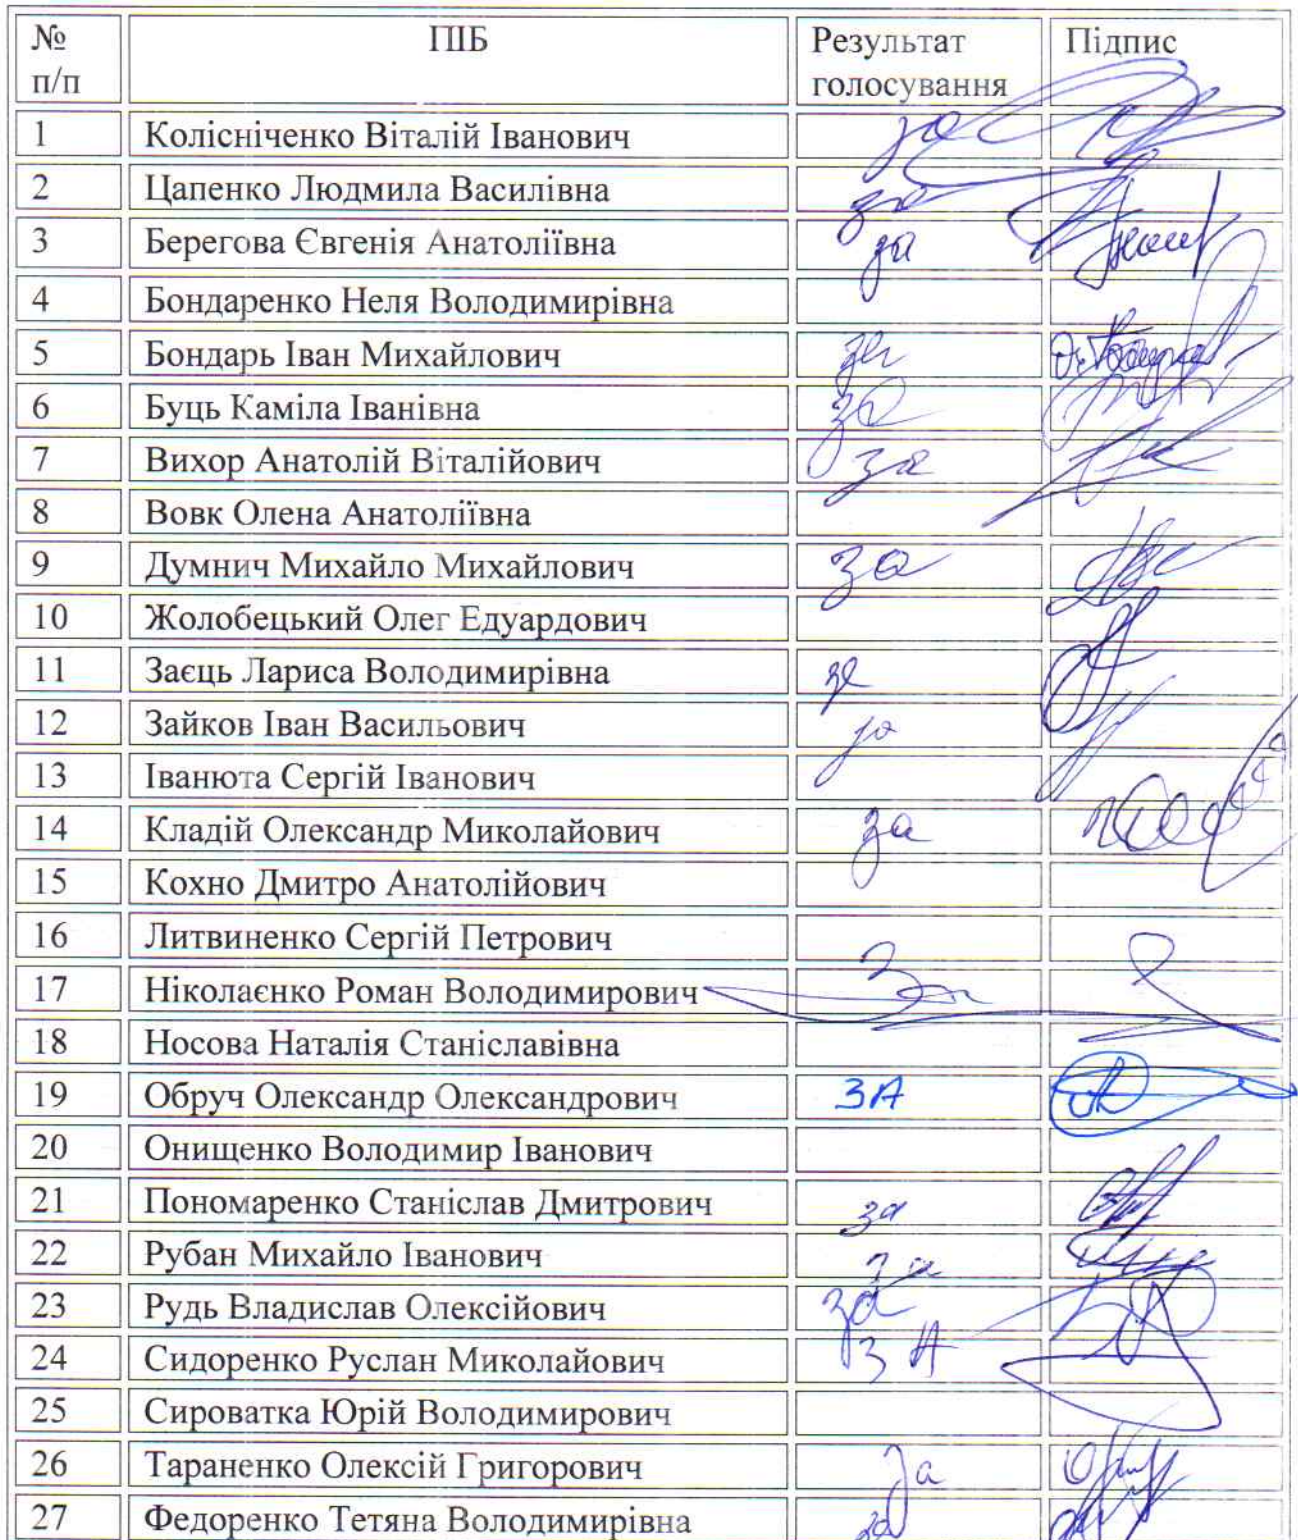 № п/п ПІБ Результат голосування Підпис
1 Колісніченко Віталій Іванович за
2 Цапенко Людмила Василівна за
3 Берегова Євгенія Анатоліївна за
4 Бондаренко Неля Володимирівна
5 Бондарь Іван Михайлович за
6 Буць Каміла Іванівна за
7 Вихор Анатолій Віталійович за
8 Вовк Олена Анатоліївна
9 Думнич Михайло Михайлович за
10 Жолобецький Олег Едуардович
11 Заєць Лариса Володимирівна за
12 Зайков Іван Васильович за
13 Іванюта Сергій Іванович
14 Кладій Олександр Миколайович за
15 Кохно Дмитро Анатолійович
16 Литвиненко Сергій Петрович
17 Ніколаєнко Роман Володимирович За
18 Носова Наталія Станіславівна
19 Обруч Олександр Олександрович ЗА
20 Онищенко Володимир Іванович
21 Пономаренко Станіслав Дмитрович за
22 Рубан Михайло Іванович за
23 Рудь Владислав Олексійович за
24 Сидоренко Руслан Миколайович ЗА
25 Сироватка Юрій Володимирович
26 Тараненко Олексій Григорович За
27 Федоренко Тетяна Володимирівна за